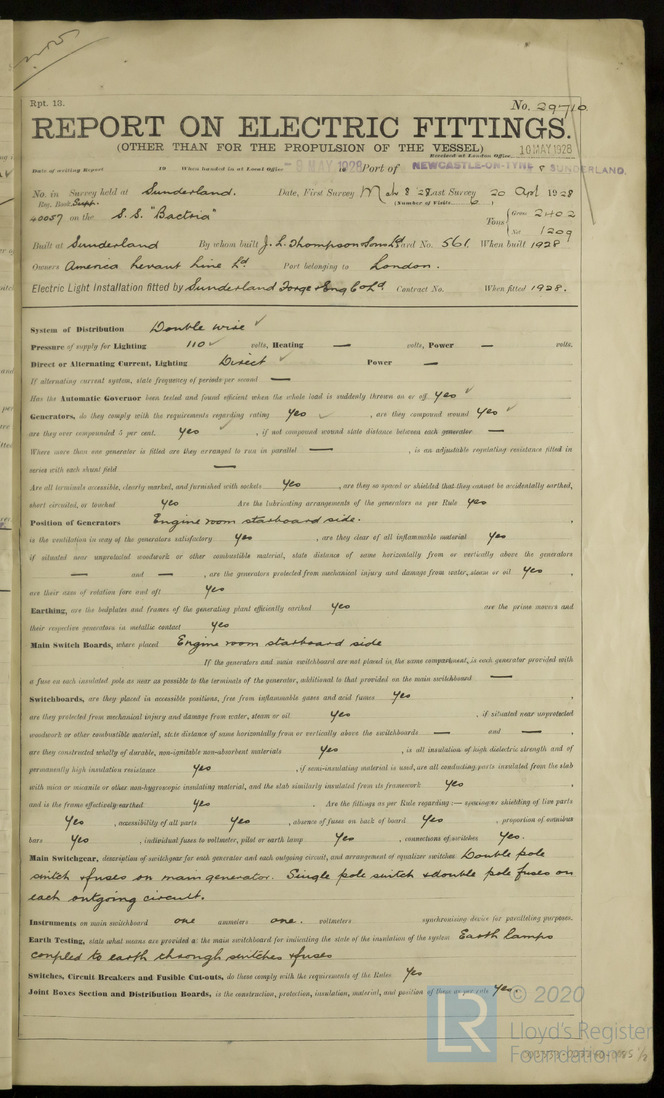 Rpt. 13.
No. 29710
REPORT ON ELECTRIC FITTINGS.
(OTHER THAN FOR THE PROPULSION OF THE VESSEL)
Received at London Office 10 MAY 1928
Date of writing Report 19 When handed in at Local Office - 8 MAY 1928 19 Port of NEWCASTLE-ON-TYNE & SUNDERLAND.
No. in Survey held at Sunderland. Date, First Survey 8 '28 Last Survey 20 Apl 1928
Reg. Book. Supp. (Number of Visits 6)
40057 on the S.S. "Bactria" Tons { Gross 2402
Net 1209
Built at Sunderland By whom built J. L. Thompson & Sons Ld Yard No. 561. When built 1928
Owners America Levant Line Ld Port belonging to London.
Electric Light Installation fitted by Sunderland Forge & Eng Co Ld. Contract No. When fitted 1928.
System of Distribution Double wire ✓
Pressure of supply for Lighting 110 ✓ volts, Heating — volts, Power — volts.
Direct or Alternating Current, Lighting Direct ✓ Power —
If alternating current system, state frequency of periods per second —
Has the Automatic Governor been tested and found efficient when the whole load is suddenly thrown on or off Yes ✓
Generators, do they comply with the requirements regarding rating Yes ✓ , are they compound wound Yes ✓
are they over compounded 5 per cent. Yes ✓ , if not compound wound state distance between each generator —
Where more than one generator is fitted are they arranged to run in parallel — , is an adjustable regulating resistance fitted in
series with each shunt field —
Are all terminals accessible, clearly marked, and furnished with sockets Yes , are they so spaced or shielded that they cannot be accidentally earthed,
short circuited, or touched Yes Are the lubricating arrangements of the generators as per Rule Yes
Position of Generators Engine room starboard side.
is the ventilation in way of the generators satisfactory Yes , are they clear of all inflammable material Yes
if situated near unprotected woodwork or other combustible material, state distance of same horizontally from or vertically above the generators
— and — , are the generators protected from mechanical injury and damage from water, steam or oil Yes ,
are their axes of rotation fore and aft Yes
Earthing, are the bedplates and frames of the generating plant efficiently earthed Yes are the prime movers and
their respective generators in metallic contact Yes
Main Switch Boards, where placed Engine room starboard side
If the generators and main switchboard are not placed in the same compartment, is each generator provided with
a fuse on each insulated pole as near as possible to the terminals of the generator, additional to that provided on the main switchboard —
Switchboards, are they placed in accessible positions, free from inflammable gases and acid fumes Yes ,
are they protected from mechanical injury and damage from water, steam or oil Yes , if situated near unprotected
woodwork or other combustible material, state distance of same horizontally from or vertically above the switchboards — and — ,
are they constructed wholly of durable, non-ignitable non-absorbent materials Yes , is all insulation of high dielectric strength and of
permanently high insulation resistance Yes , if semi-insulating material is used, are all conducting parts insulated from the slab
with mica or micanite or other non-hygroscopic insulating material, and the slab similarly insulated from its framework Yes
and is the frame effectively earthed Yes . Are the fittings as per Rule regarding :— spacing or shielding of live parts
Yes , accessibility of all parts Yes , absence of fuses on back of board Yes , proportion of omnibus
bars Yes , individual fuses to voltmeter, pilot or earth lamp Yes , connections of switches Yes.
Main Switchgear, description of switchgear for each generator and each outgoing circuit, and arrangement of equalizer switches Double pole
switch & fuses on main generator. Single pole switch & double pole fuses on
each outgoing circuit.
Instruments on main switchboard one ammeters one. voltmeters synchronising device for paralleling purposes.
Earth Testing, state what means are provided at the main switchboard for indicating the state of the insulation of the system Earth lamps
coupled to earth through switches & fuses
Switches, Circuit Breakers and Fusible Cut-outs, do these comply with the requirements of the Rules Yes
Joint Boxes Section and Distribution Boards, is the construction, protection, insulation, material, and position of these as per rule Yes.
LR © 2020
Lloyd's Register
Foundation